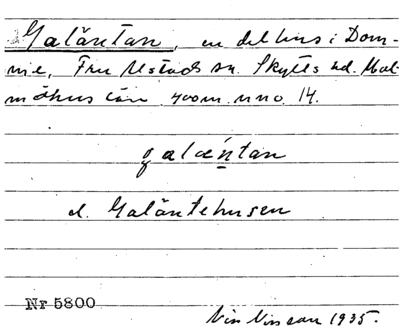 Galäntan, en del hus i Dom-
me, Fru Alstads sn. Skytts hd. Mal-
möhus län. room. nno. 14.
galæntan
el. Galäntehusen
Nr 5800
1935.